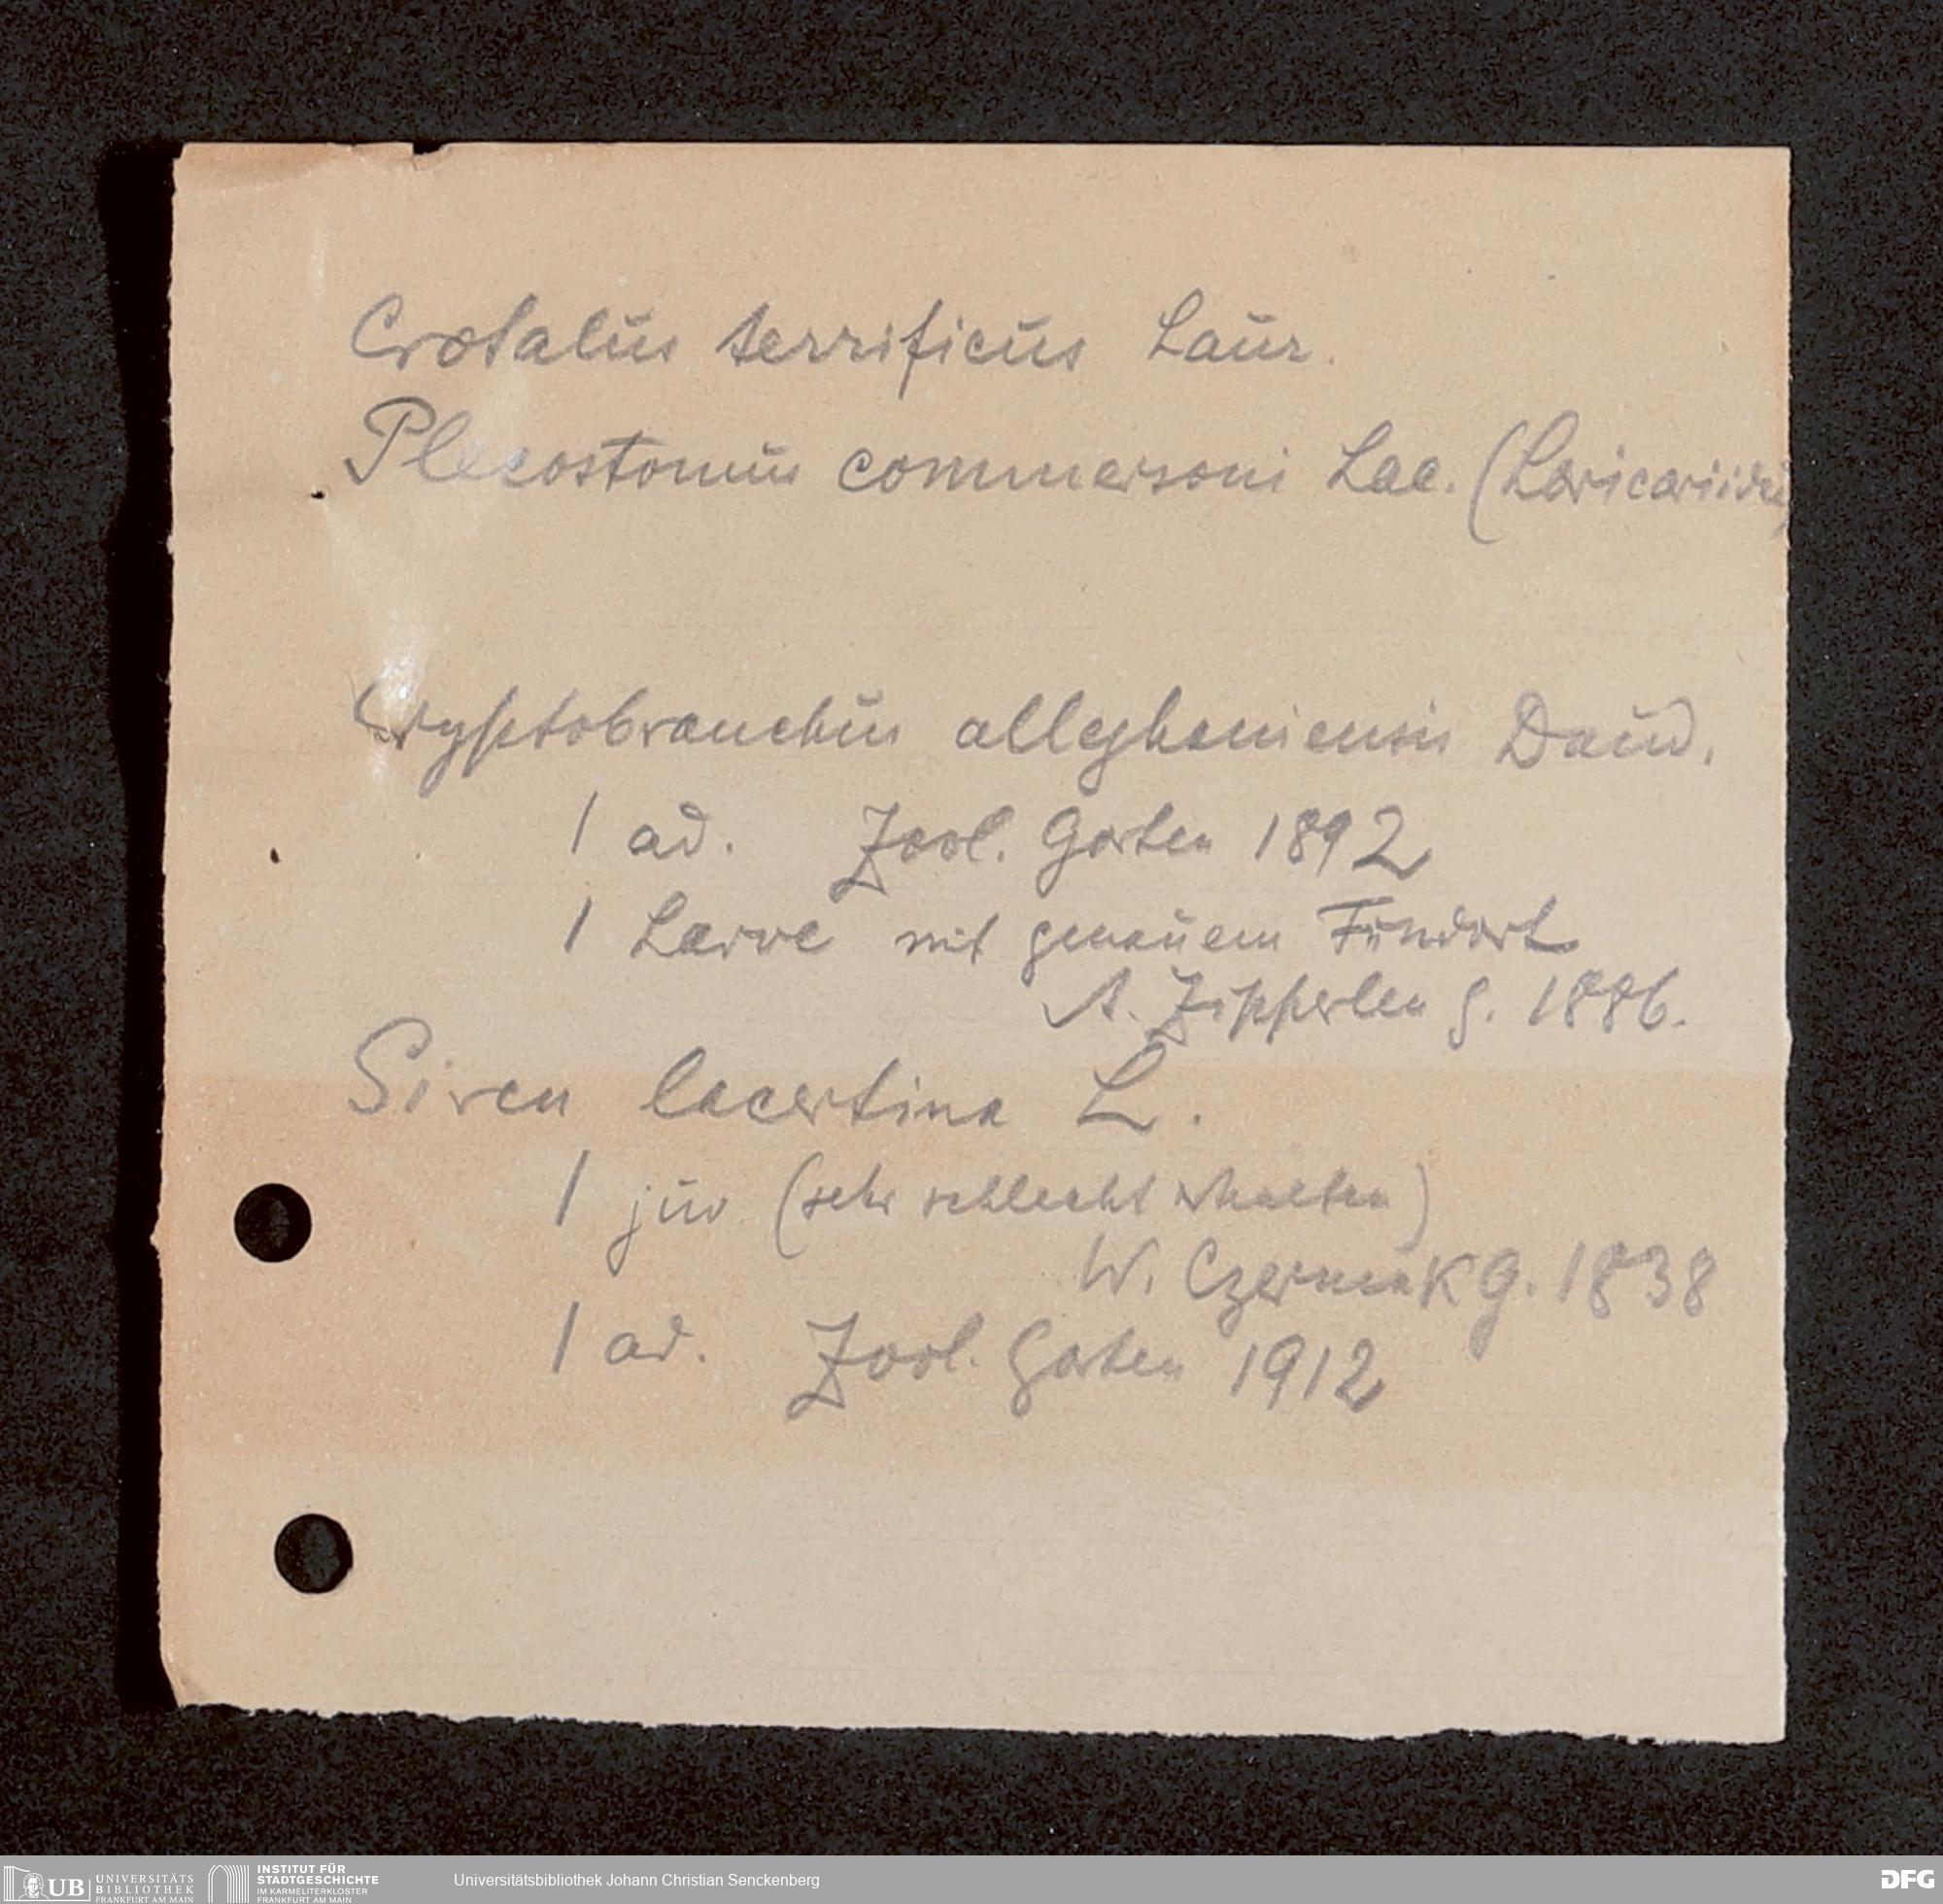 Crotalus terrificus Laur.
Plecostomus commersoni Lac. (Loricariidae
Cryptobranchus alleghaniensis Daud.
1 ad. Zool. Garten 1892
1 Larve mit genauem Fundort
A. Zipperlen g. 1886.
Siren lacertina L.
1 juv (sehr schlecht erhalten)
W. Czermak g. 1838
1 ad. Zool. Garten 1912
UB UNIVERSITÄTS BIBLIOTHEK FRANKFURT AM MAIN
INSTITUT FÜR STADTGESCHICHTE IM KARMELITERKLOSTER FRANKFURT AM MAIN
Universitätsbibliothek Johann Christian Senckenberg
DFG